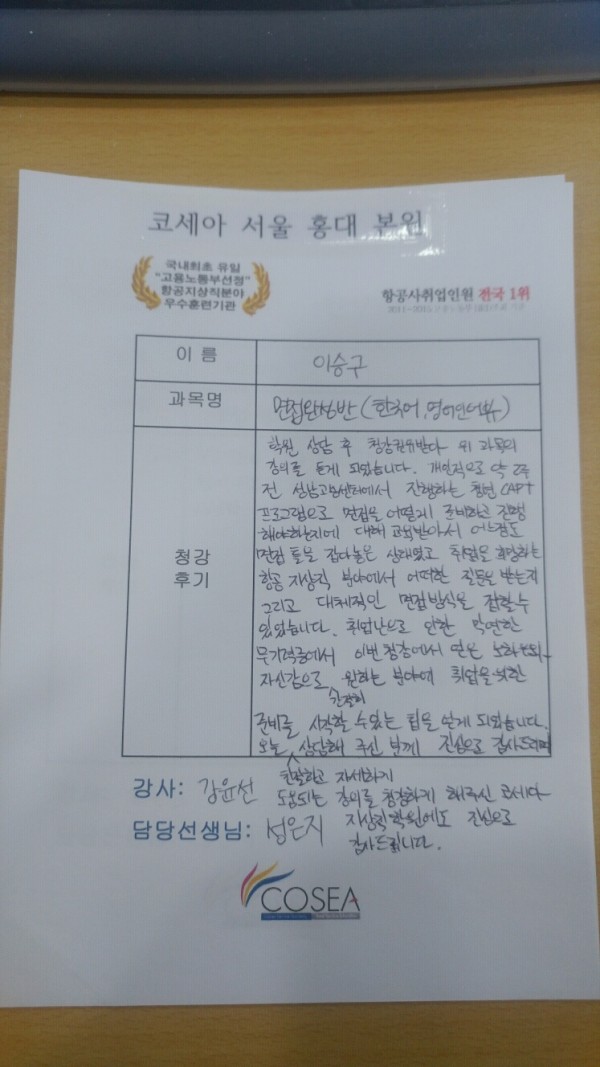 코세아 서울 홍대 본원
국내최초 유일
"고용노동부선정"
항공지상직분야
우수훈련기관
항공사취업인원 전국 1위
이 름
이승구
과목명
면접완성반 (한국어, 영어인터뷰)
청강
후기
학원 상담 후 청강권유받다 위 과목의
강의를 듣게 되었습니다. 개인적으로 약 2주
전 성남고용센터에서 진행하는 청년 CAP+
프로그램으로 면접을 어떻게 준비하고 진행
해야하는지에 대해 교육받아서 어느정도
면접 틀을 잡아놓은 상태였고 취업을 희망하는
항공 지상직 분야에서 어떠한 질문을 받는지
그리고 대체적인 면접방식을 접할 수
있었습니다. 취업난으로 인한 막연한
무기력증에서 이번 청강에서 얻은 노하우와
자신감으로 원하는 분야에 취업을 위한
간절히
준비를 시작할 수 있는 팁을 얻게 되었습니다.
오늘 상담해 주신 분께 진심으로 감사드리며
친절하고 자세하게
강사: 강윤선
도움되는 강의를 청강하게 해주신 코세아
담당선생님: 성은지
지상직학원에도 진심으로
감사드립니다.
COSEA